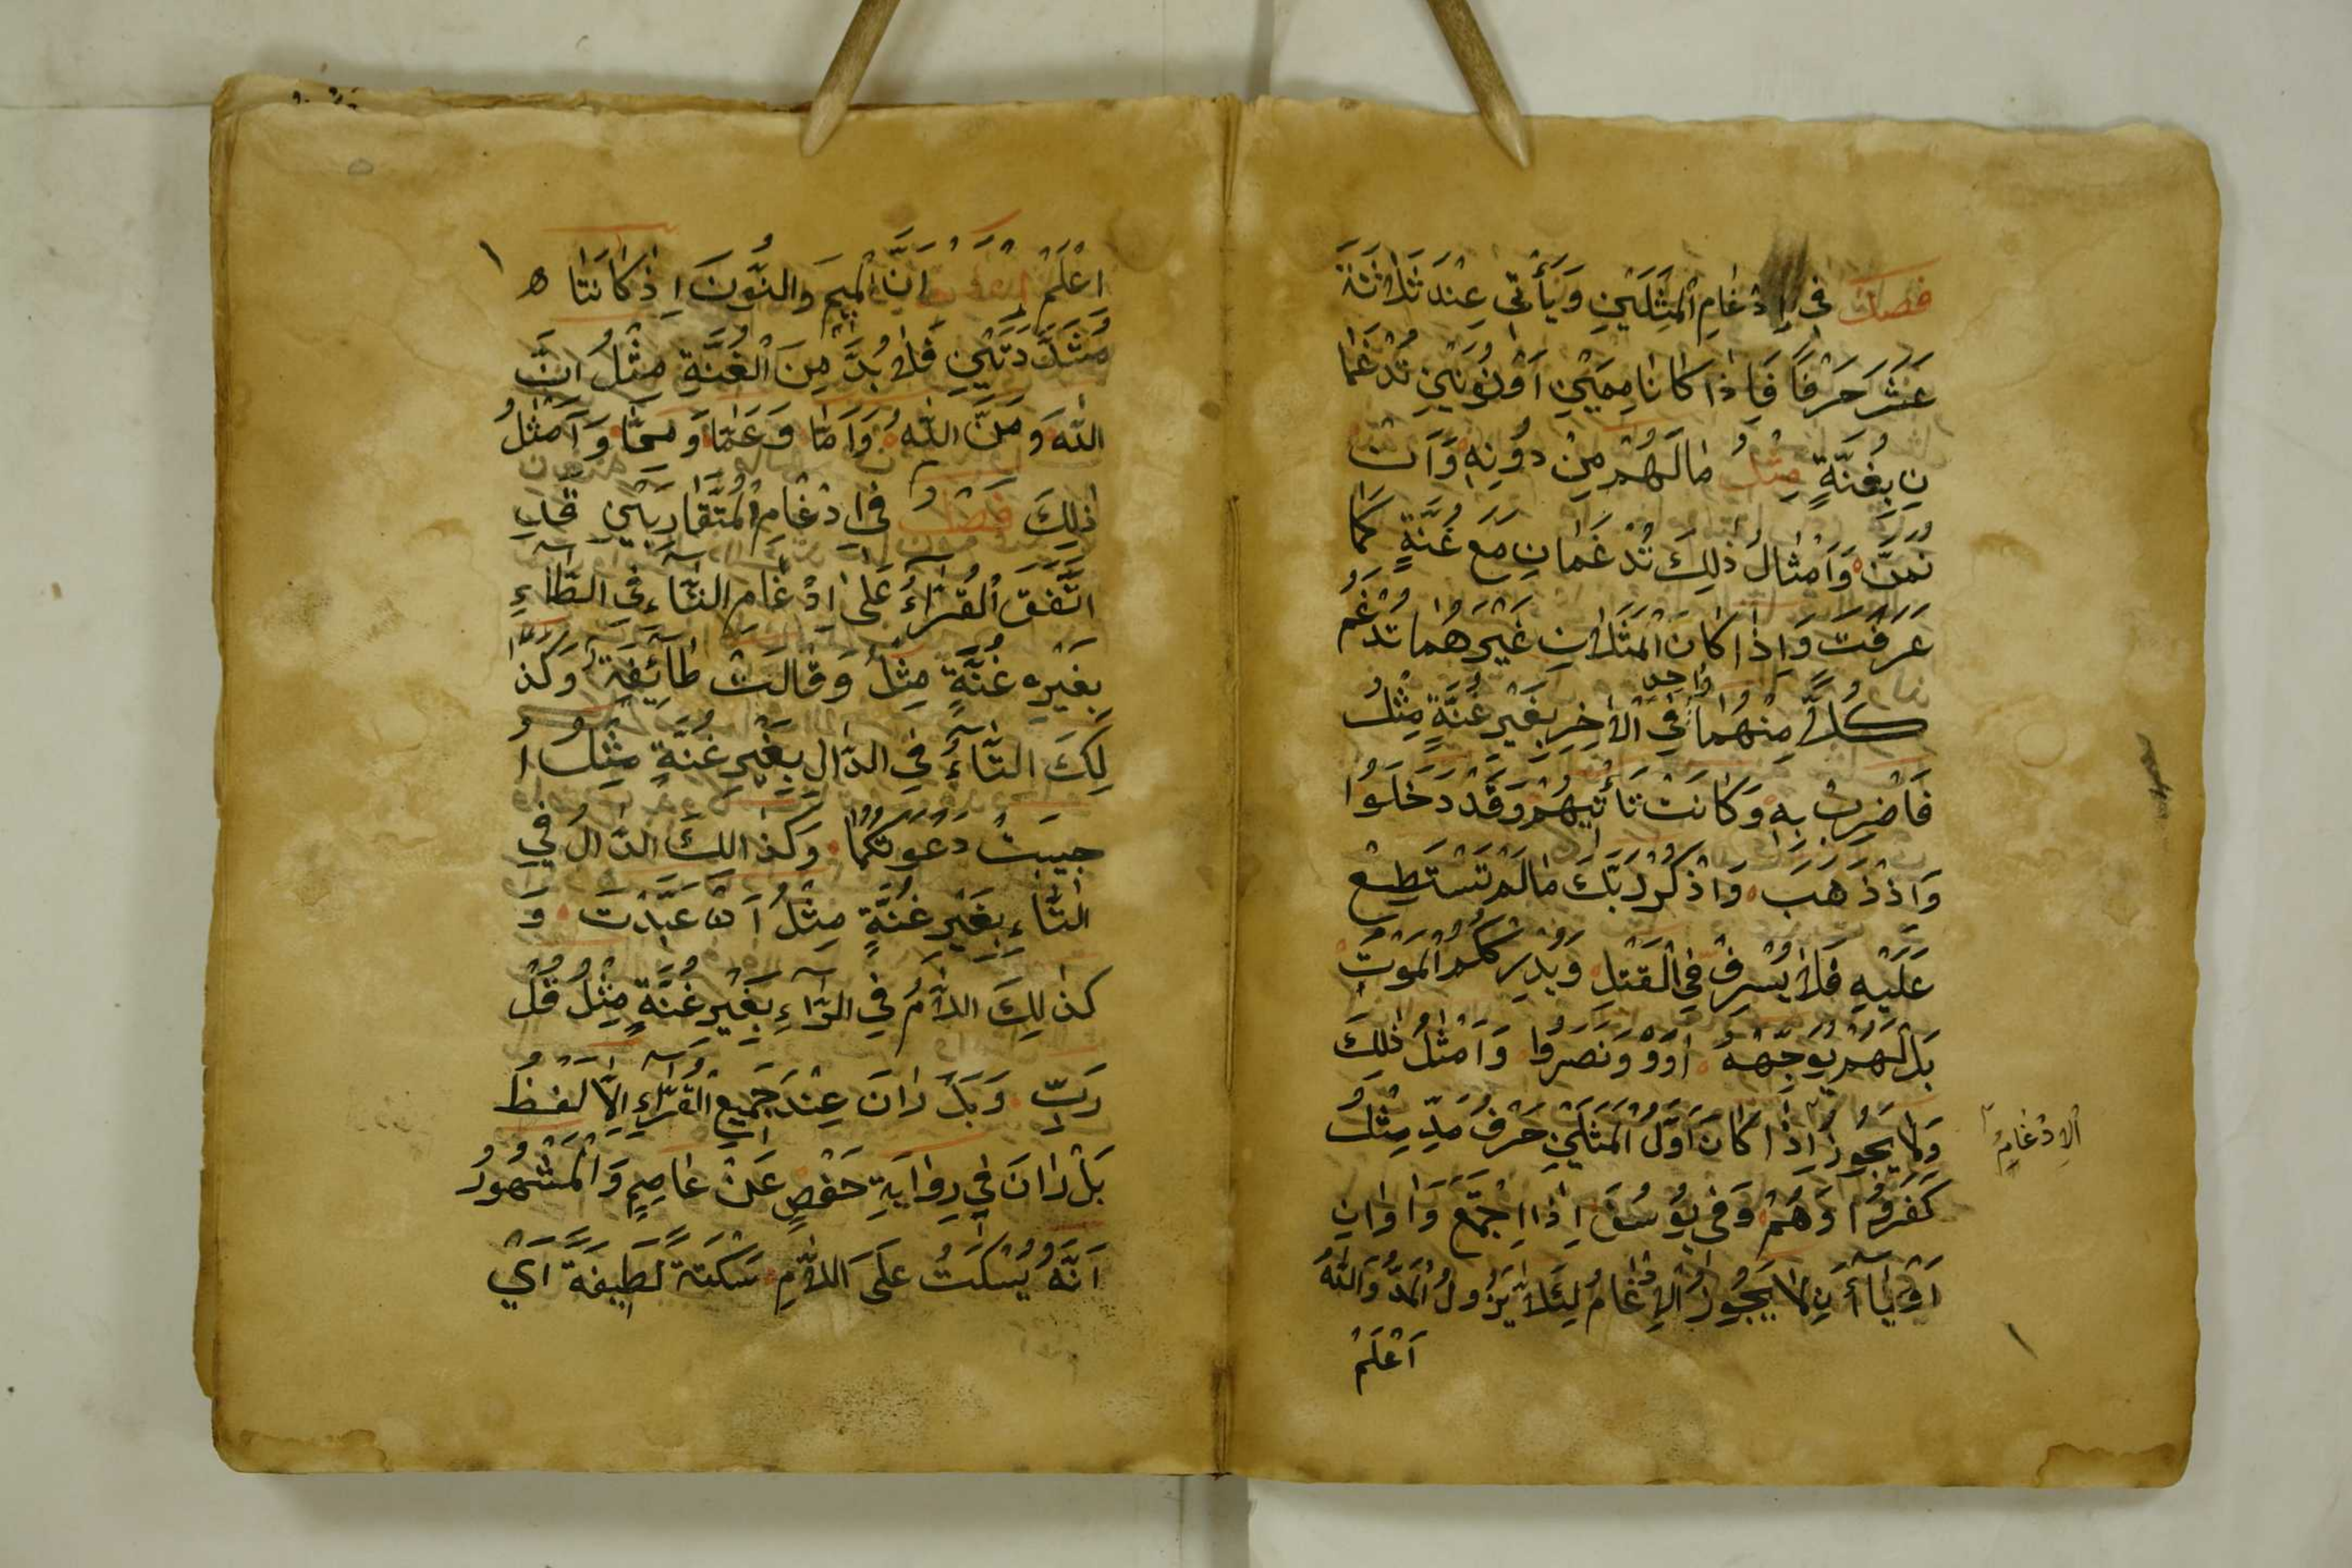 فَصْلٌ فِي اِدْغَامِ الْمِثْلَيْنِ وَيَأْتِي عِنْدَ ثَلَاثَةَ
عَشَرَ حَرْفًا فَاِذَا كَانَا مِيمَيْنِ اَوْ نُونَيْنِ تُدْغَمَا
نِ بِغُنَّةٍ مِثْلُ مَا لَهُمْ مِنْ دُوْنِهِ وَاَنْ
نَمُنَّ وَاَمْثَالُ ذٰلِكَ تُدْغَمَانِ مَعَ غُنَّةٍ كَمَا
عَرَفْتَ وَاِذَا كَانَ الْمِثْلَانِ غَيْرَهُمَا تُدْغَمُ
كُلُّ وَاحِدٍ مِنْهُمَا فِي الْاٰخِرِ بِغَيْرِ غُنَّةٍ مِثْلُ
فَاضْرِبْ بِهِ وَكَانَتْ تَأْتِيْهِمْ وَقَدْ دَخَلُوْا
وَاِذْ ذَهَبَ وَاذْكُرْ رَبَّكَ مَا لَمْ تَسْتَطِعْ
عَلَيْهِ فَلَا يُسْرِفْ فِي الْقَتْلِ وَيُدْرِكْكُمُ الْمَوْتُ
بَلْ لَهُمْ يُوَجِّهْهُ اٰوَوْ وَنَصَرُوا وَاَمْثٰلُ ذٰلِكَ
وَلَا يَجُوزُ اِذَا كَانَ اَوَّلُ الْمِثْلَيْنِ حَرْفُ مَدٍّ مِثْلُ
الاِدْغَامُ
كَفَرُوا وَهُمْ وَفِي يُوسُفَ اِذَا اجْتَمَعَ وَاوَانِ
اَوْ يَاآنِ لَا يَجُوزُ الْاِدْغَامُ لِئَلَّا يَزُولُ الْمَدُّ وَاللّٰهُ
اَعْلَمُ
اِعْلَمْ اَنَّ الْمِيْمَ وَالنُّوْنَ اِذَا كَانَتَا
مُشَدَّدَتَيْنِ فَلَا بُدَّ مِنَ الْغُنَّةِ مِثْلُ اِنَّ
اللّٰهَ وَمَنَّ اللّٰهُ وَاَمَّا وَعَمَّا وَمِمَّا وَاَمْثٰلُ
ذٰلِكَ فَصْلٌ فِي اِدْغَامِ الْمُتَقَارِبَيْنِ قَدِ
اتَّفَقَ الْقُرَّاءُ عَلَى اِدْغَامِ التَّاءِ فِي الطَّاءِ
بِغَيْرِ غُنَّةٍ مِثْلُ وَقَالَتْ طَائِفَةٌ وَكَذَا
لِكَ التَّاءُ فِي الدَّالِ بِغَيْرِ غُنَّةٍ مِثْلُ اُ
جِيبَتْ دَعْوَتُكُمَا وَكَذَالِكَ الدَّالُ فِي
التَّاءِ بِغَيْرِ غُنَّةٍ مِثْلُ اَنْ عَبَّدْتَ وَ
كَذٰلِكَ اللَّامُ فِي الرَّاءِ بِغَيْرِ غُنَّةٍ مِثْلُ قُلْ
رَبِّ وَبَلْ رَانَ عِنْدَ جَمِيعِ الْقُرَّاءِ اِلَّا لَفْظُ
بَلْ رَانَ فِي رِوَايَةِ حَفْصٍ عَنْ عَاصِمٍ وَالْمَشْهُورُ
اَنَّهُ يُسْكَتُ عَلَى اللَّامِ سَكْتَةً لَطِيفَةً اَيْ